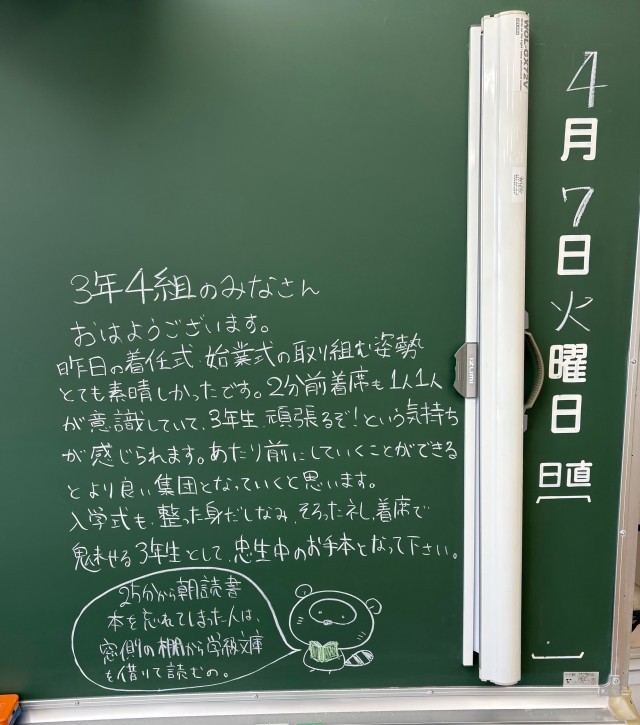 3年4組のみなさん
おはようございます。
昨日の着任式、始業式の取り組む姿勢
とても素晴しかったです。2分前着席も1人1人
が意識していて、3年生、頑張るぞ!という気持ち
が感じられます。あたり前にしていくことができる
とより良い集団となっていくと思います。
入学式も、整った身だしなみ、そろった礼、着席で
魅せる3年生として、忠生中のお手本となって下さい。
25分から朝読書
本を忘れてしまった人は、
窓側の棚から学級文庫
を借りて読むの。
4月7日火曜日
日直
WOL-GX72V
IZUMI